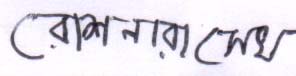 রোশনারা সেখ